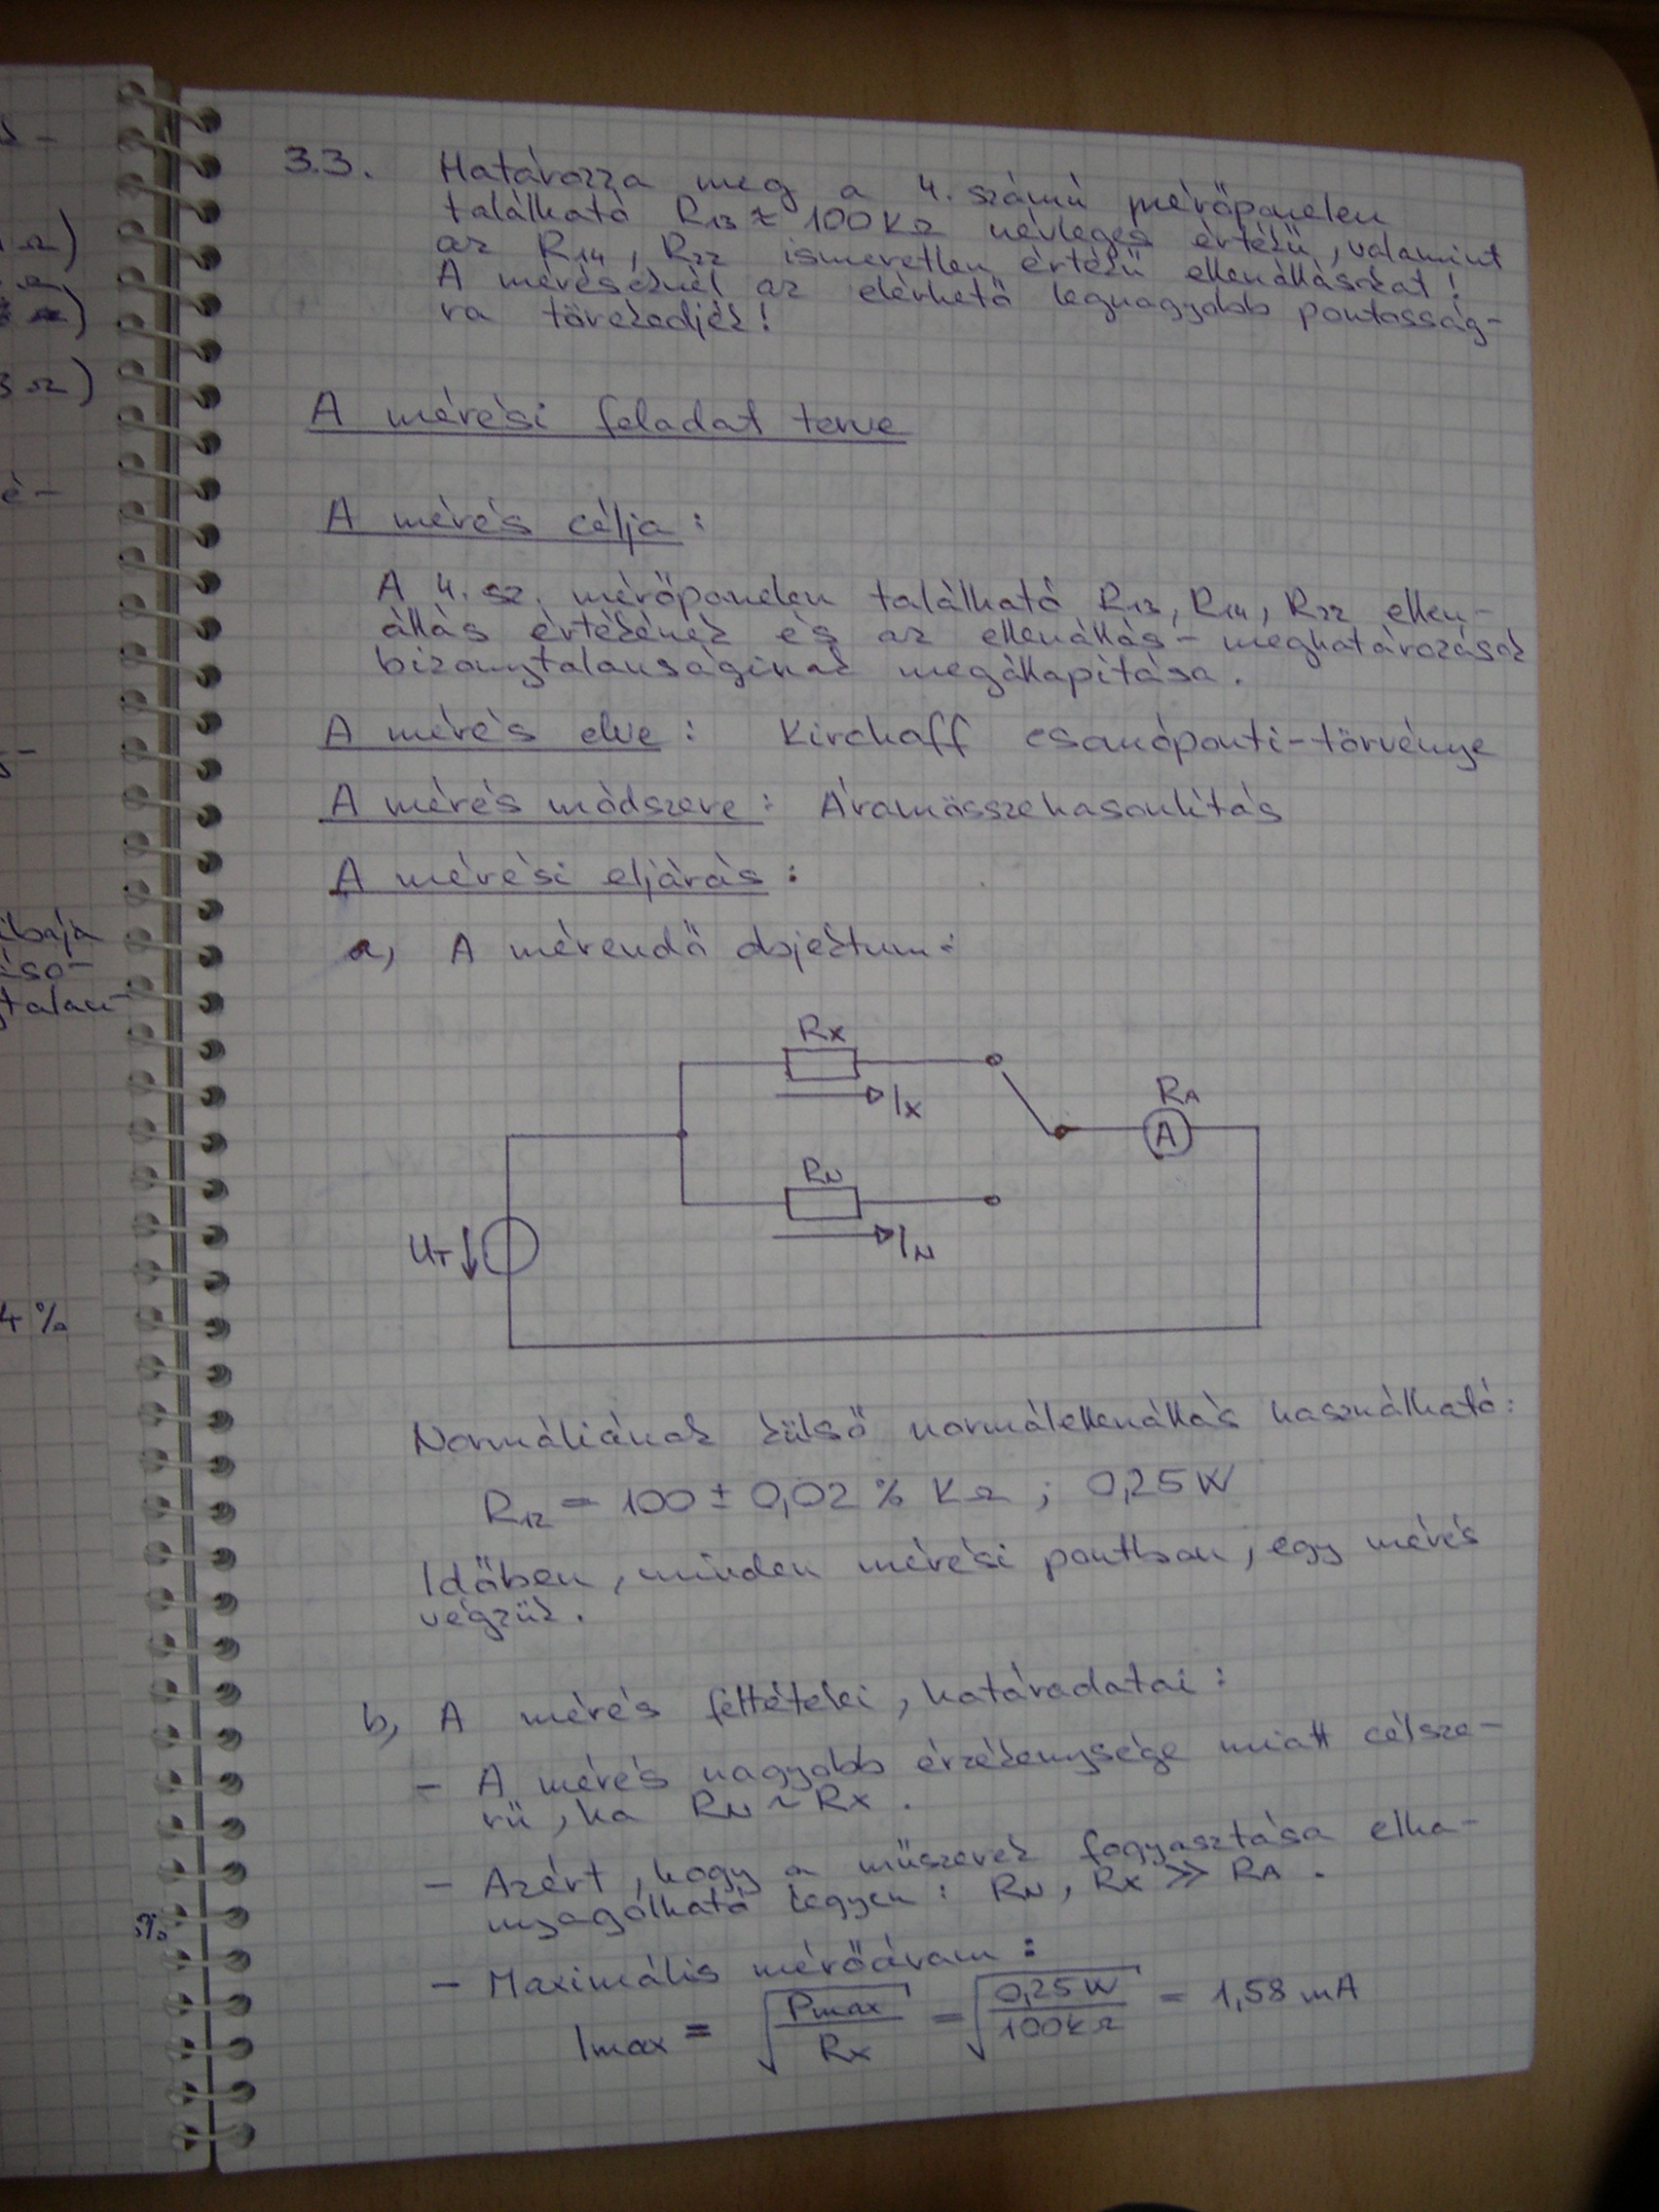 3.3. Határozza meg a 4. számú mérőpanelen
található R13 ≈ 100KΩ névleges értékű, valamint
az R14, R22 ismeretlen értékű ellenállásokat!
A méréseknél az elérhető legnagyobb pontosság-
ra törekedjék!
A mérési feladat terve
A mérés célja:
A 4. sz. mérőpanelen található R13, R14, R22 ellen-
állás értékének és az ellenállás-meghatározások
bizonytalanságinak megállapítása.
A mérés elve: Kirchoff csomóponti-törvénye
A mérés módszere: Áramösszehasonlítás
A mérési eljárás:
a, A mérendő objektum:
Rx
Ix
RA
A
RN
IN
UT
Normáliának külső normálellenállás használható:
R12 = 100 ± 0,02 % KΩ ; 0,25 W
Időben, minden mérési pontban, egy mérés
végzük.
b, A mérés feltételei, határadatai:
- A mérés nagyobb érzékenysége miatt célsze-
rű, ha RN ~ Rx.
- Azért, hogy a műszerek fogyasztása elha-
nyagolható legyen: RN, Rx >> RA.
- Maximális mérőáram:
Imax = √(Pmax/Rx) = √(0,25W/100kΩ) = 1,58 mA
Ω)
Ω)
3 Ω)
é-
ibája
talan-
4 %